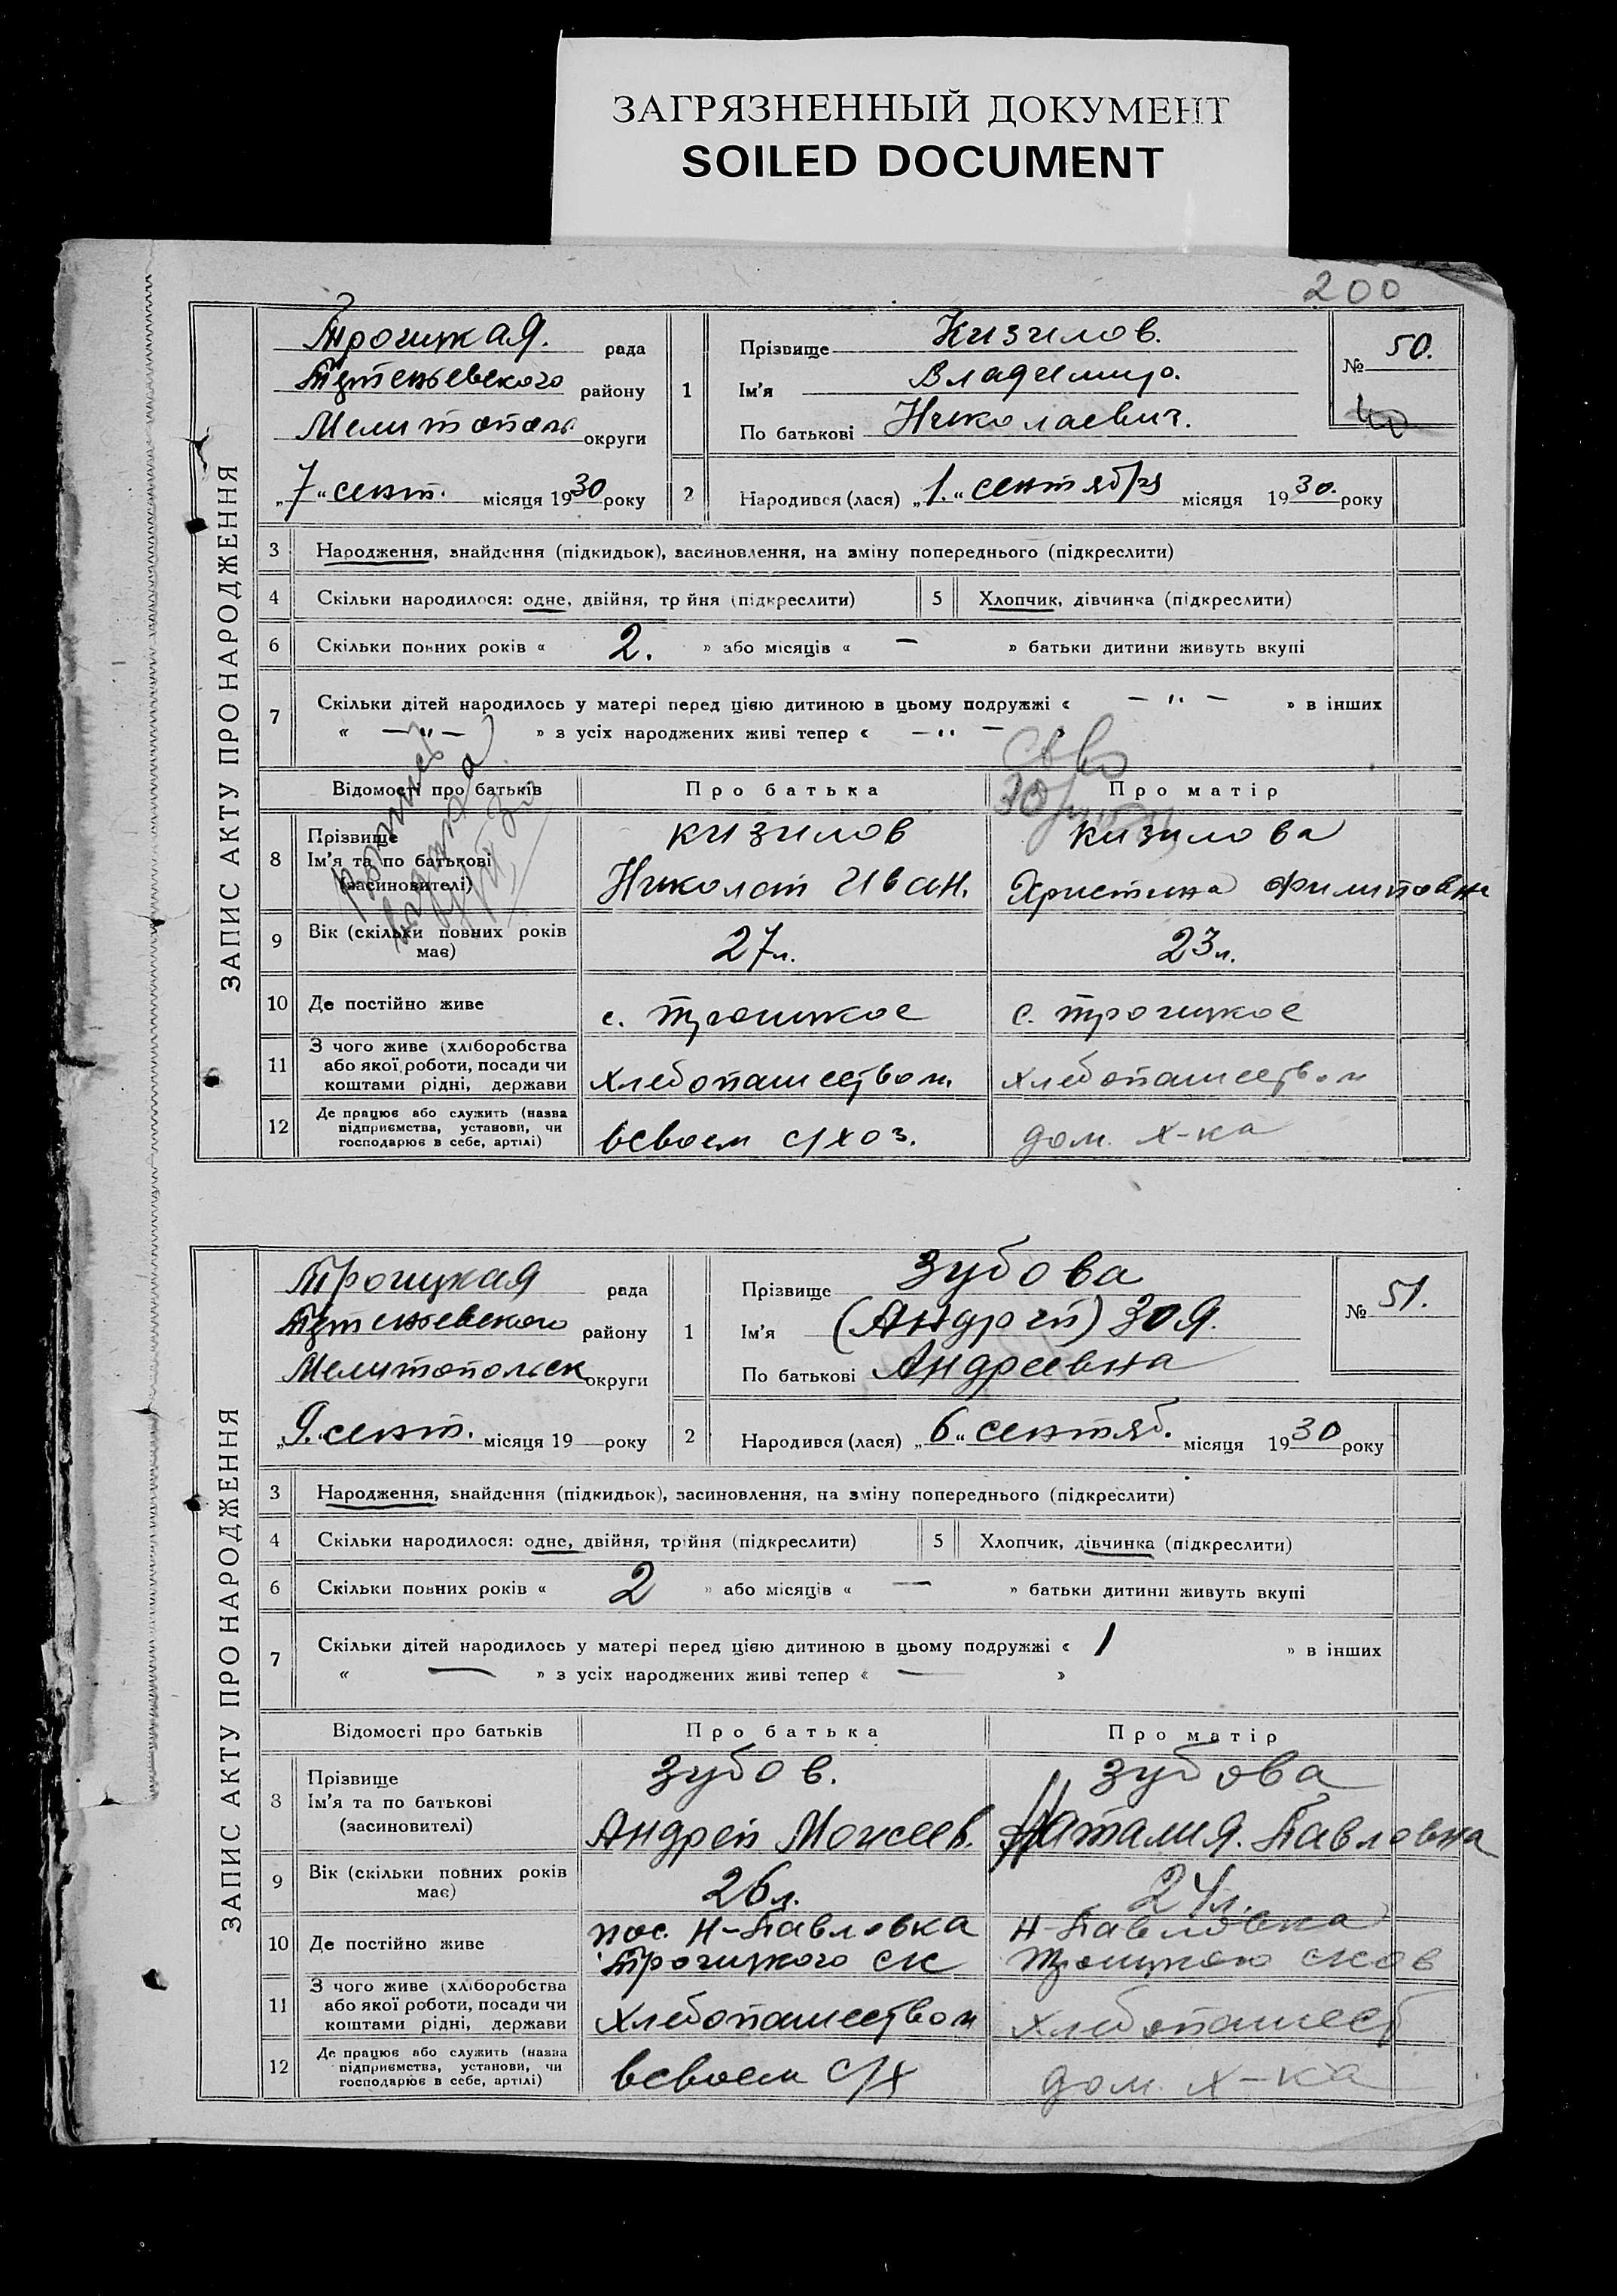 ЗАГРЯЗНЕННЫЙ ДОКУМЕНТ
SOILED DOCUMENT
200
ЗАПИС АКТУ ПРО НАРОДЖЕННЯ
Троицкая. рада
району
Мелитополь округи
„7“ сент. місяця 1930 року
1 Прізвище Кизилов.
Ім'я Владимир.
По батькові Николаевич.
№ 50.
2 Народився (лася) „1.“ сентября місяця 1930. року
3 Народження, знайдення (підкидьок), засиновлення, на зміну попереднього (підкреслити)
4 Скільки народилося: одне, двійня, трійня (підкреслити) 5 Хлопчик, дівчинка (підкреслити)
6 Скільки повних років « 2. » або місяців « – » батьки дитини живуть вкупі
7 Скільки дітей народилось у матері перед цією дитиною в цьому подружжі « – " – » в інших
« – " – » з усіх народжених живі тепер « – " – »
Відомості про батьків Про батька Про матір
8 Прізвище Ім'я та по батькові (засиновителі) кизилов кизилова
Николай Иван. Христина Филиповна
9 Вік (скільки повних років має) 27 л. 23 л.
10 Де постійно живе с. троицкое с. троицкое
11 З чого живе (хліборобства або якої роботи, посади чи коштами рідні, держави хлебопашеством. хлебопашеством
12 Де працює або служить (назва підприємства, установи, чи господарює в себе, артілі) всвоем с/хоз. дом. х-ка
ЗАПИС АКТУ ПРО НАРОДЖЕННЯ
Троицкая рада
району
Мелитопольск округи
„9.“ сент. місяця 19 — року
1 Прізвище Зубова
Ім'я (Андрей) Зоя.
По батькові Андреевна
№ 51.
2 Народився (лася) „6“ сентяб. місяця 1930 року
3 Народження, знайдення (підкидьок), засиновлення, на зміну попереднього (підкреслити)
4 Скільки народилося: одне, двійня, трійня (підкреслити) 5 Хлопчик, дівчинка (підкреслити)
6 Скільки повних років « 2 » або місяців « — » батьки дитини живуть вкупі
7 Скільки дітей народилось у матері перед цією дитиною в цьому подружжі « 1 » в інших
« — » з усіх народжених живі тепер « — »
Відомості про батьків Про батька Про матір
8 Прізвище Ім'я та по батькові (засиновителі) Зубов. Зубова
Андрей Моисеев. Наталия. Павловна
9 Вік (скільки повних років має) 26 л. 24 л.
10 Де постійно живе пос. Н-Павловка Н-Павловка
Троицкого ск троицкого
11 З чого живе (хліборобства або якої роботи, посади чи коштами рідні, держави хлебопашеством хлебопашест
12 Де працює або служить (назва підприємства, установи, чи господарює в себе, артілі) всвоем с/х дом. х-ка